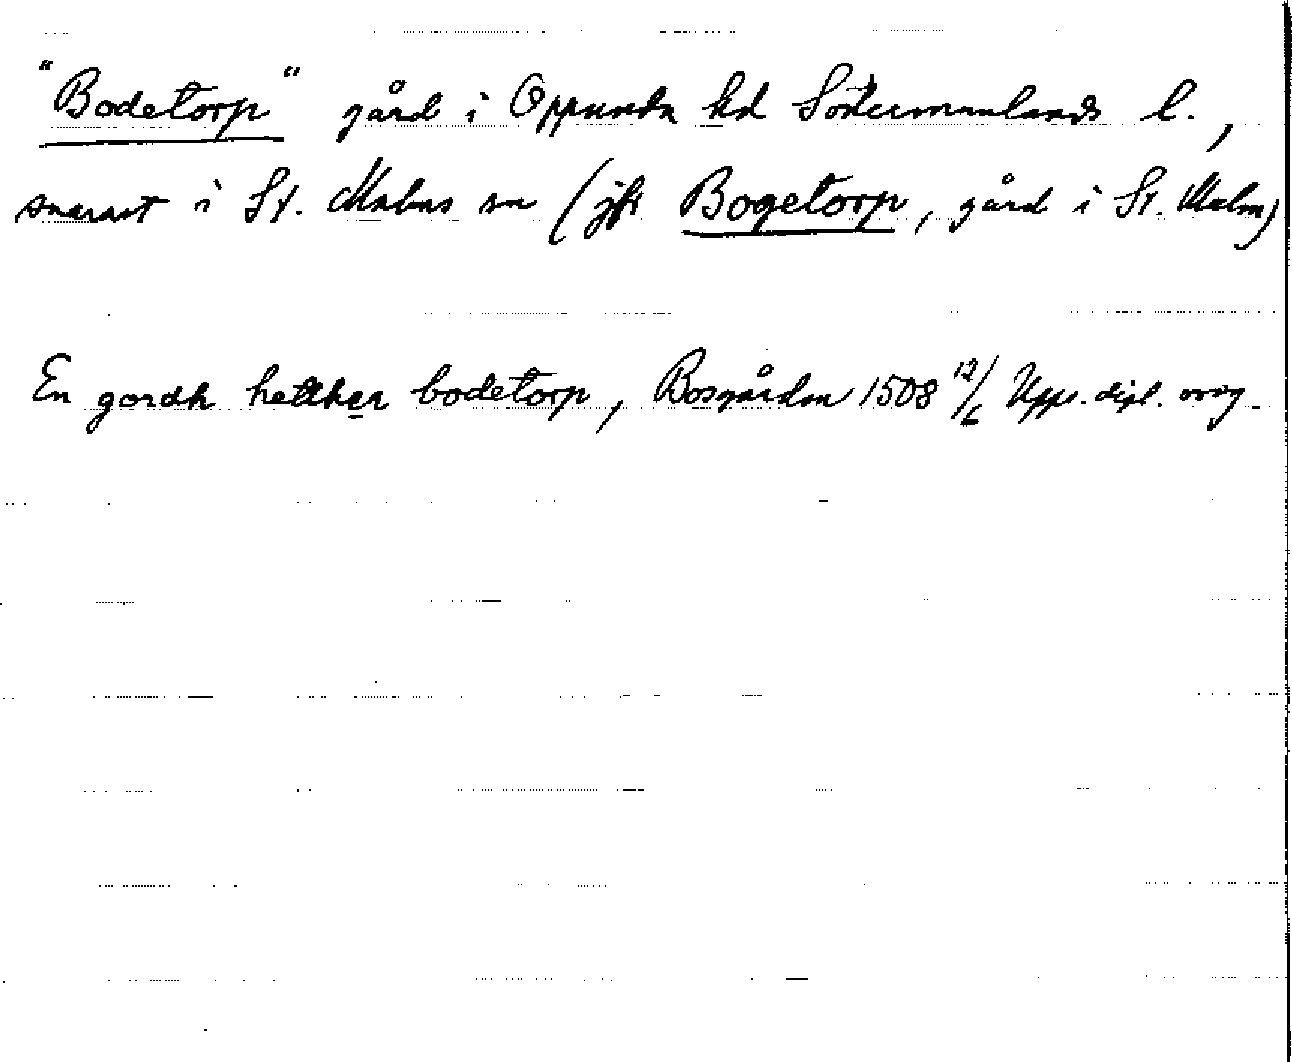 "Bodetorp" gård i Oppunda hd Södermanlands l.,
snarast i St. Malms sn (jfr Bogetorp, gård i St. Malm)
En gordh hetther bodetorp, Bosgården 1508 12/6 Upps. dipl. orig